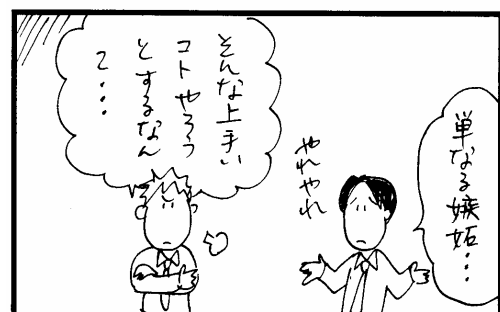 単なる嫉
妬・・・
やれやれ
そんな上手い
コトやろう
とするなん
て・・・